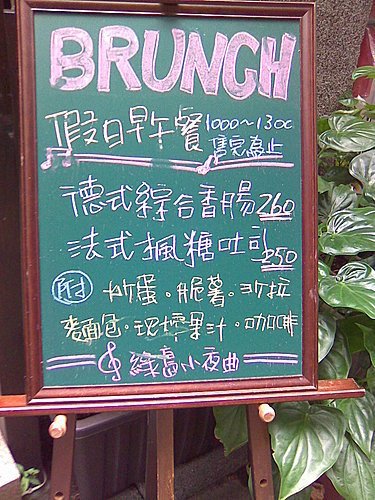 BRUNCH
假日早午餐 1000～1300
售完為止
德式綜合香腸 260
法式楓糖吐司 250
附 炒蛋．脆薯．沙拉
麵包．現榨果汁．咖啡
綠島小夜曲